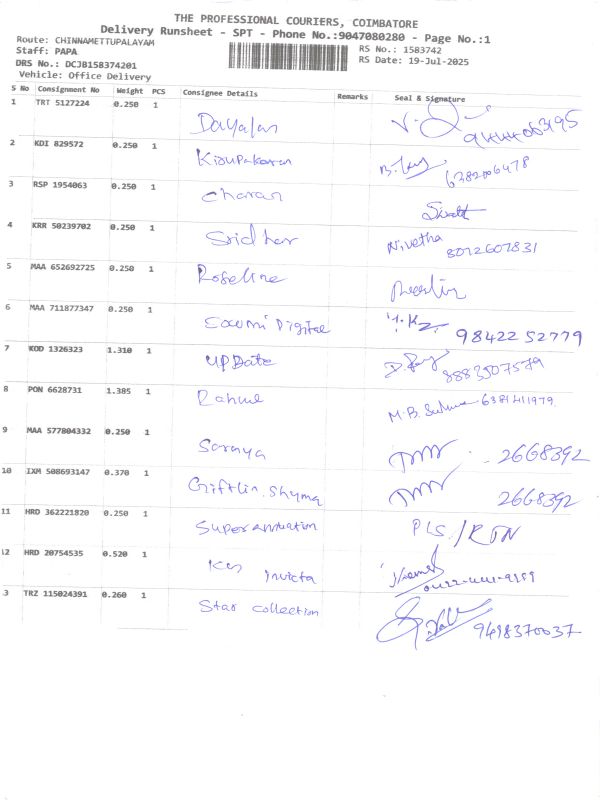 THE PROFESSIONAL COURIERS, COIMBATORE
Delivery Runsheet - SPT - Phone No.:9047080280 - Page No.:1
Route: CHINNAMETTUPALAYAM
Staff: PAPA
RS No.: 1583742
DRS No.: DCJB158374201
RS Date: 19-Jul-2025
Vehicle: Office Delivery
S No Consignment No Weight PCS Consignee Details Remarks Seal & Signature
1 TRT 5127224 0.250 1 Dayalan
2 KDI 829572 0.250 1 Kirupakaran 6382006478
3 RSP 1954063 0.250 1 Charan
4 KRR 50239702 0.250 1 Sridhar Nivetha 8072607831
5 MAA 652692725 0.250 1 Roseline
6 MAA 711877347 0.250 1 Digital 98422 52779
7 KOD 1326323 1.310 1 UPDate 8883507579
8 PON 6628731 1.385 1 Rahul M.B. 6381411979
9 MAA 577804332 0.250 1 Saranya 2668392
10 IXM 508693147 0.370 1 Giftlin. Shyma 2668392
11 HRD 362221820 0.250 1 Superannuation PLS./RTN
12 HRD 20754535 0.520 1 Invicta
3 TRZ 115024391 0.260 1 Star collection 9498370037